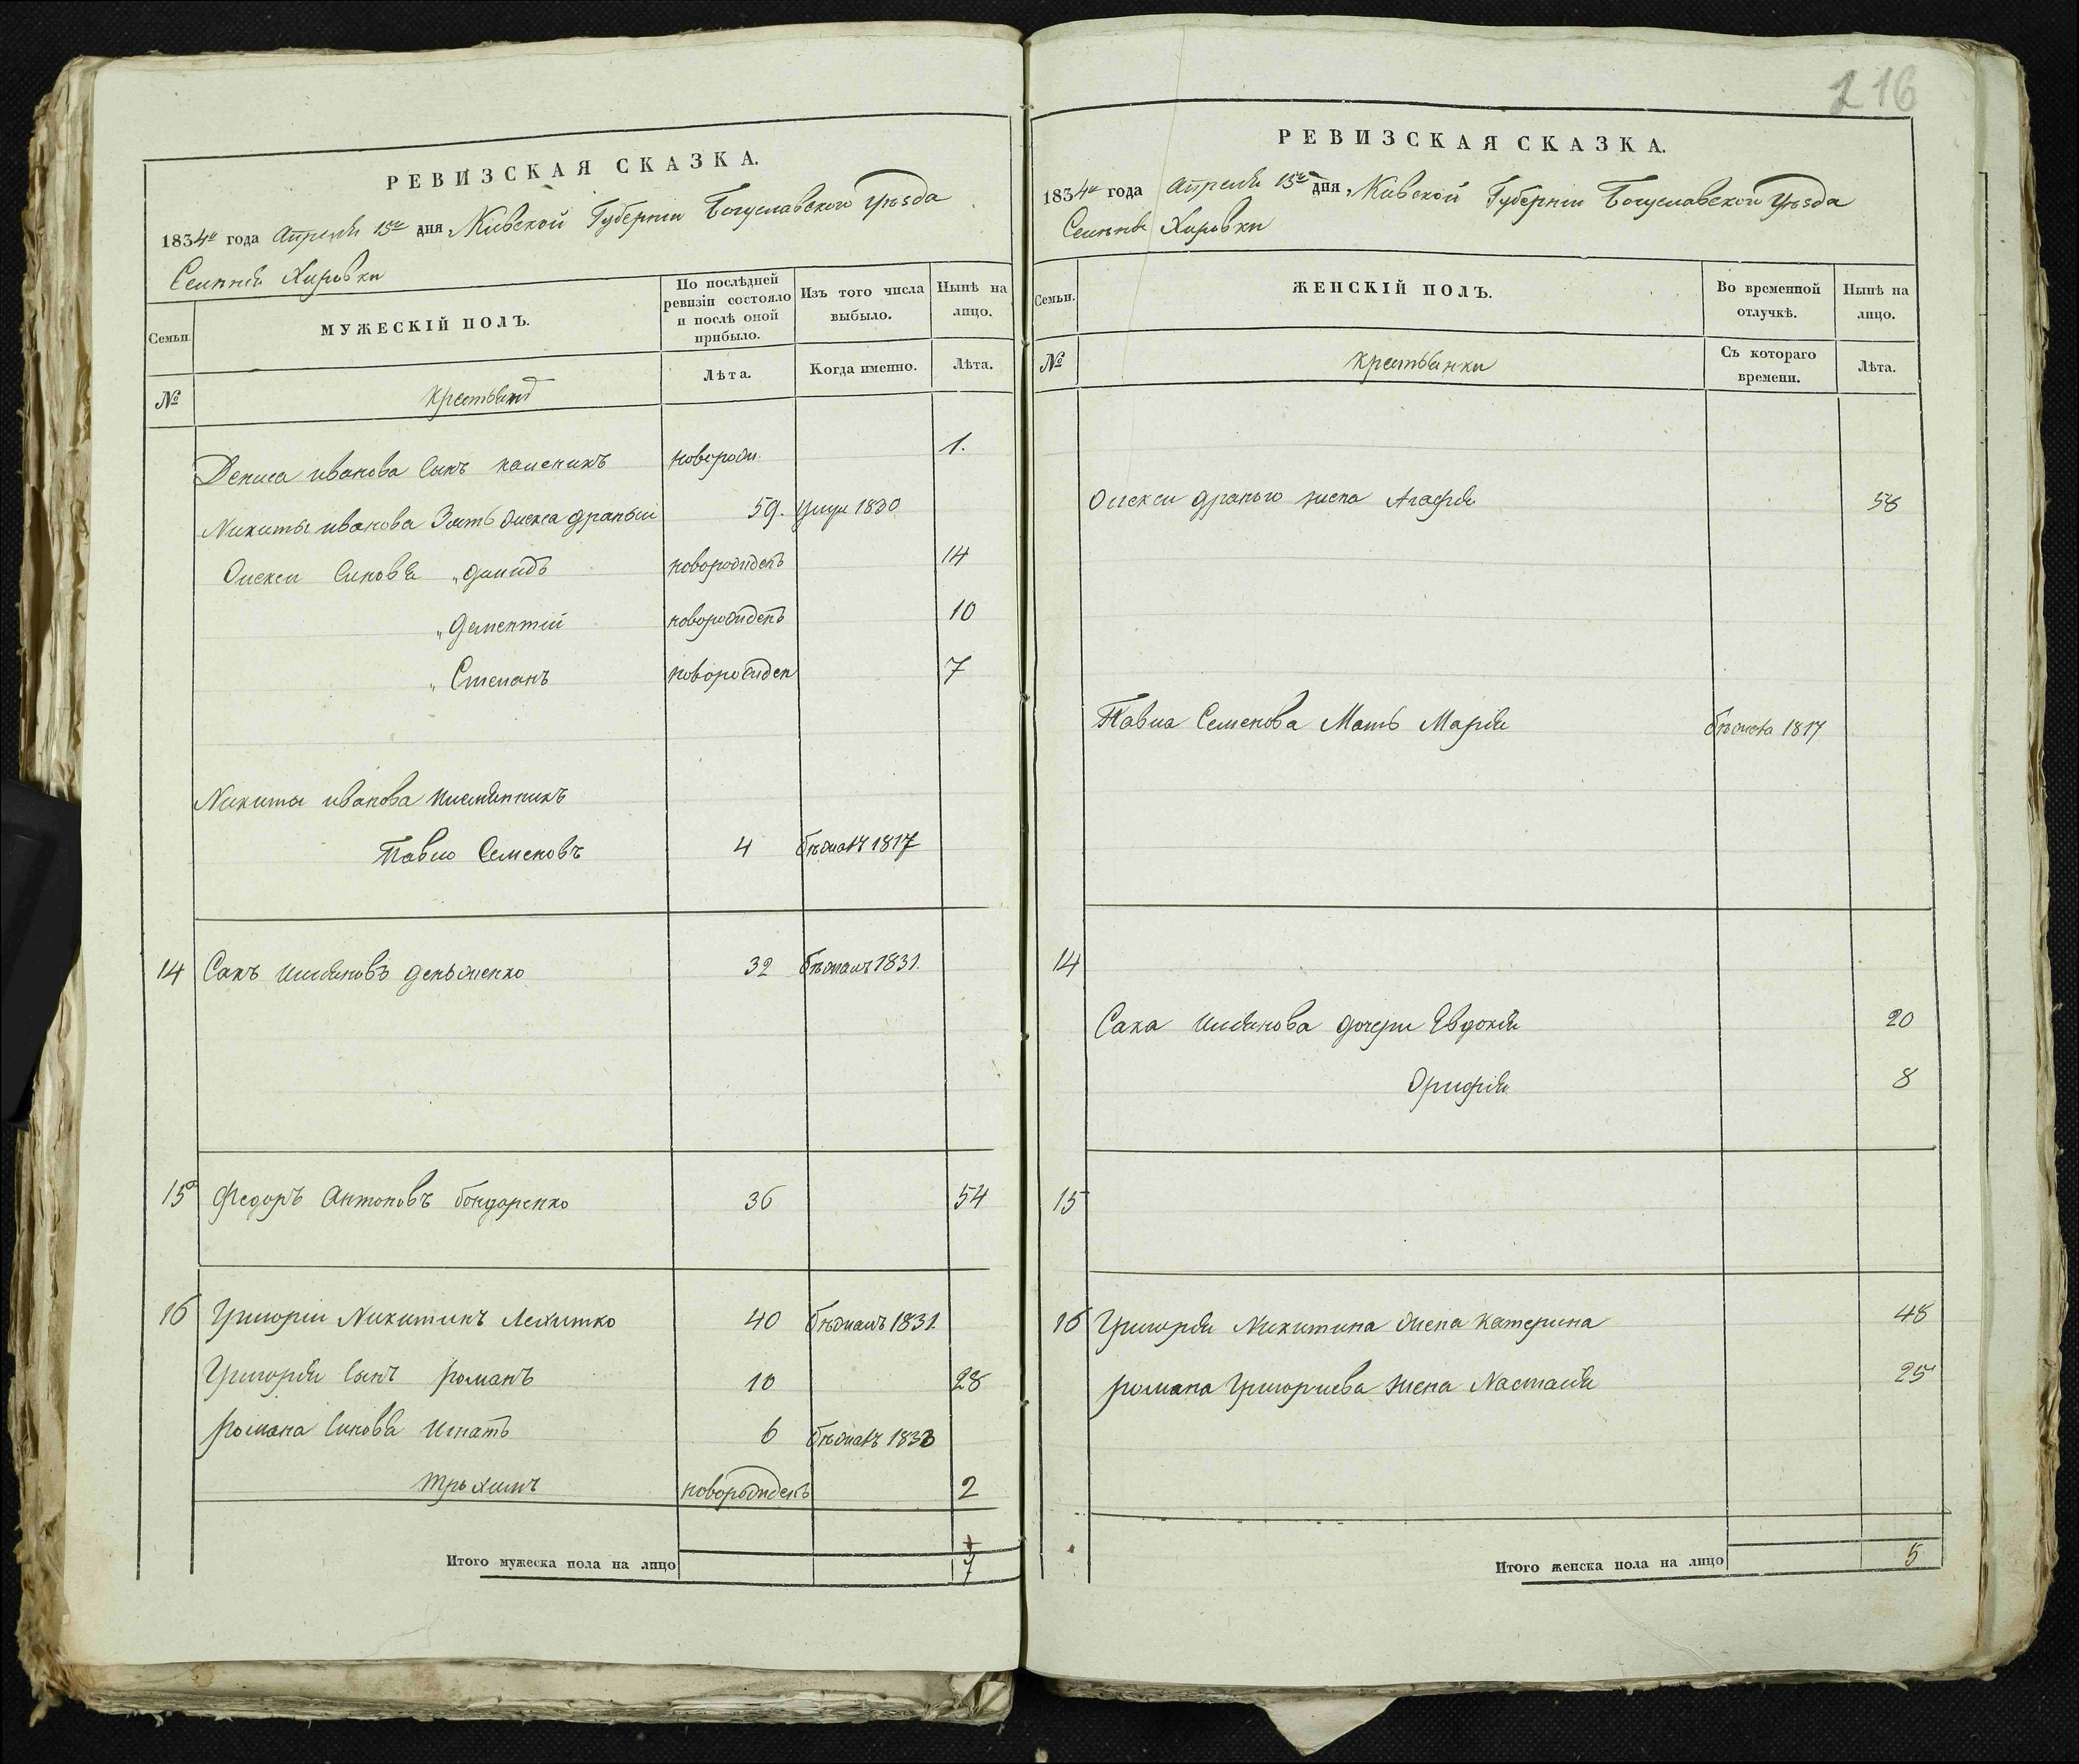 216
РЕВИЗСКАЯ СКАЗКА.
1834го года Апреля 15го дня, Киевской Губерніи Богуславского уѣзда
Селенія Хировки
Семьи.
МУЖЕСКІЙ ПОЛЪ.
По послѣдней ревизіи состояло и послѣ оной прибыло.
Изъ того числа выбыло.
Нынѣ на лицо.
№
Крестьянъ
Лѣта.
Когда именно.
Лѣта.
Дениса иванова сынъ новорож. 1.
Никиты иванова Зять Олекса драный 59. умре 1830
Олекси синовя „ новорожденъ 14
„ Дементій новорожденъ 10
„ Степанъ новорожден 7
Никиты иванова племянникъ
Павло Семеновъ 4 бѣжалъ 1817
14 Сакъ 32 бѣжалъ 1831.
15 Федоръ Антоновъ бондаренко 36 54
16 Григорій Никитинъ 40 бѣжалъ 1831
Григорія сынъ романъ 10 28
романа синовя Игнатъ 6 бѣжалъ 1833
Трохимъ новорожденъ 2
Итого мужеска пола на лицо 7
РЕВИЗСКАЯ СКАЗКА.
1834го года Апреля 15го дня, Киевской Губерніи Богуславского уѣзда
Селенія Хировки
Семьи.
ЖЕНСКІЙ ПОЛЪ.
Во временной отлучкѣ.
Нынѣ на лицо.
№
Крестьянки
Съ котораго времени.
Лѣта.
Олекси драного жена Агафія 58
Павла Семенова Мать Марія бѣжала 1817
14
Сака дочери Евдокія 20
8
15
16 Григорія Никитина жена Катерина 48
романа Григориева жена Настасія 25
Итого женска пола на лицо 5